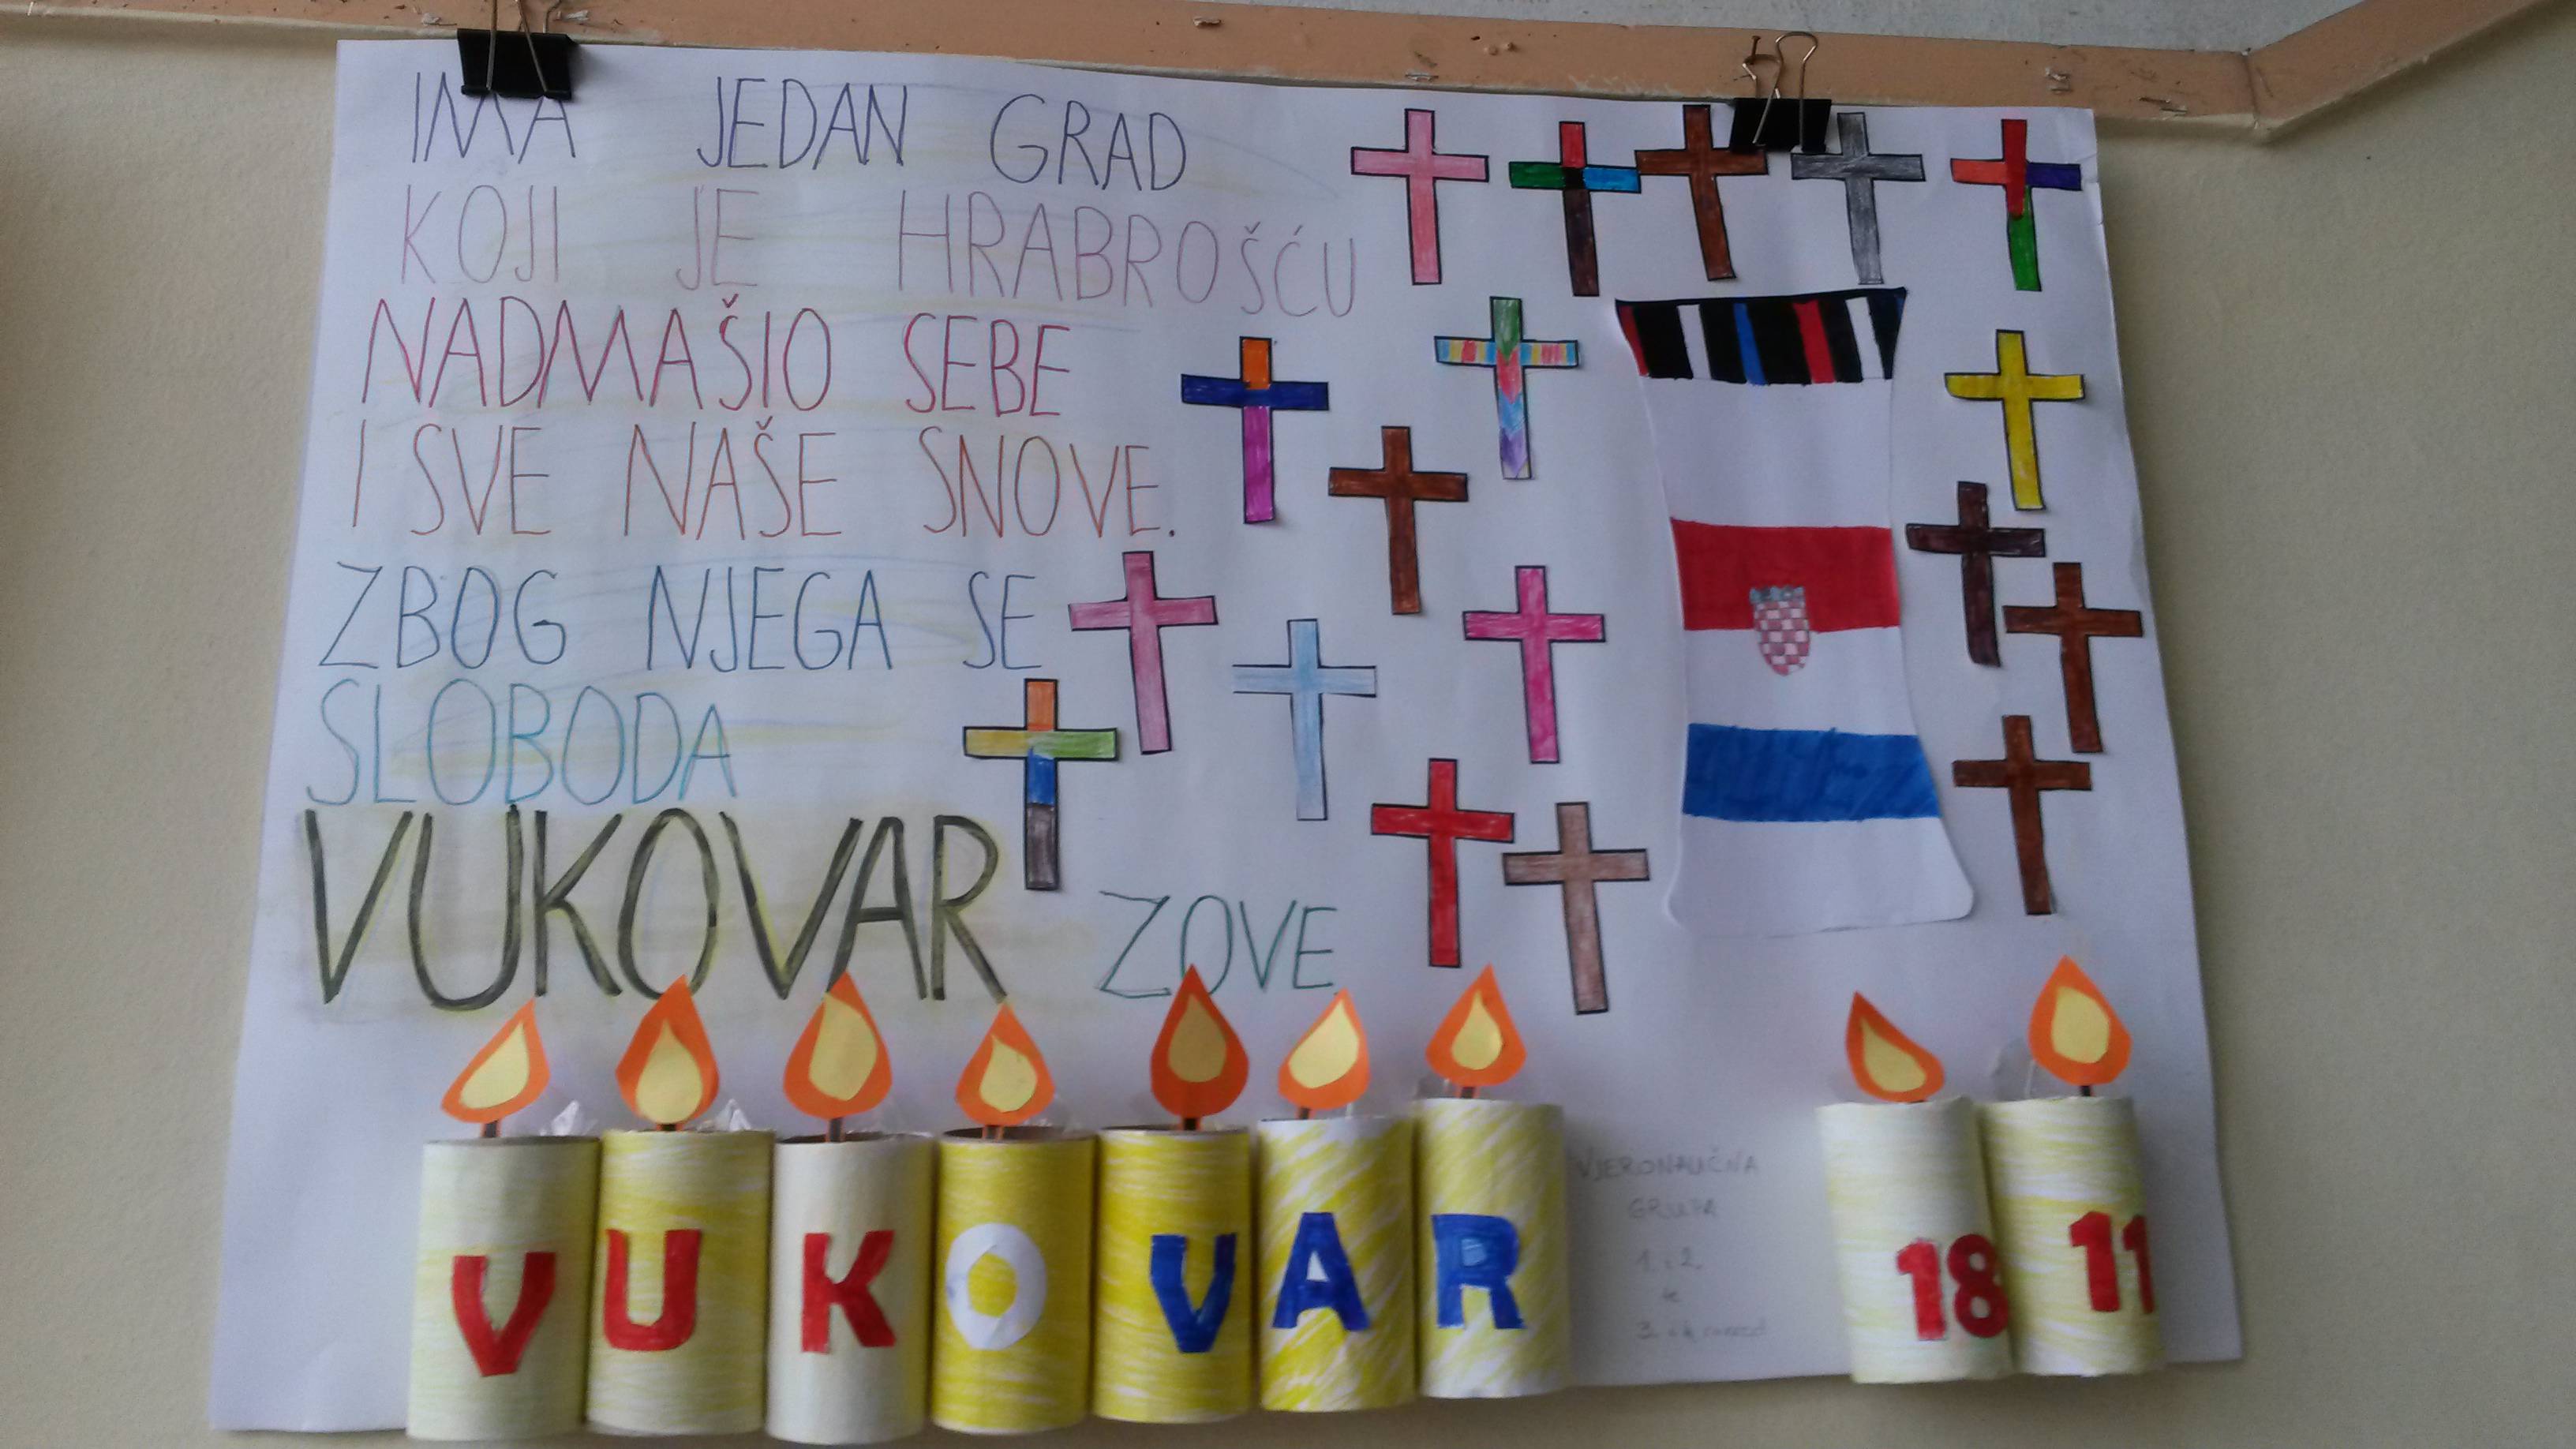 IMA JEDAN GRAD
KOJI JE HRABROŠĆU
NADMAŠIO SEBE
I SVE NAŠE SNOVE.
ZBOG NJEGA SE
SLOBODA
VUKOVAR ZOVE
VUKOVAR
VJERONAUČNA
GRUPA
1. i 2.
te
3.
18 11